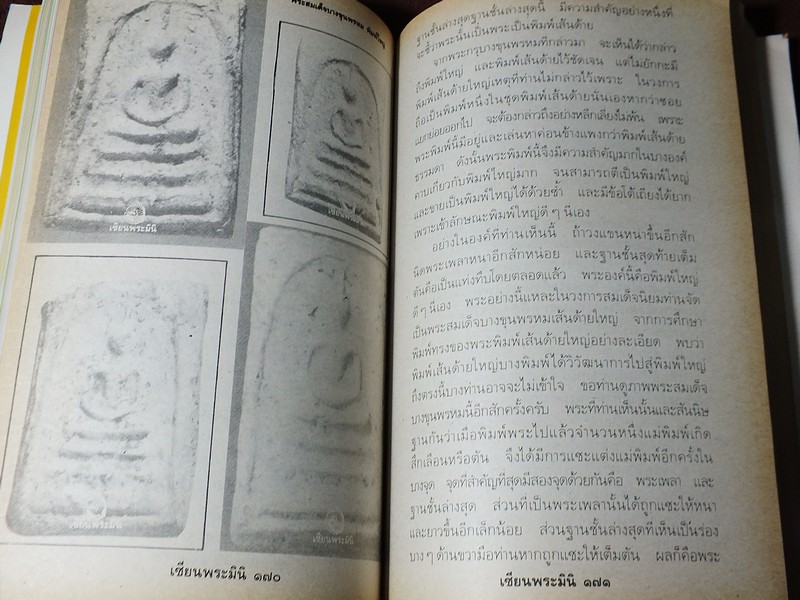 พระสมเด็จบางขุนพรหม พิมพ์ใหญ่
เซียนพระมินิ
เซียนพระมินิ
เซียนพระมินิ
เซียนพระมินิ
เซียนพระมินิ ๑๗๐
ฐานชั้นล่างสุดฐานชั้นล่างสุดนี้ มีความสำคัญอย่างหนึ่งที่
จะชี้ว่าพระนั้นเป็นพระเป็นพิมพ์เส้นด้าย
จากพระกรุบางขุนพรหมที่กล่าวมา จะเห็นได้ว่ากล่าว
ถึงพิมพ์ใหญ่ และพิมพ์เส้นด้ายไว้ชัดเจน แต่ไม่ยักกะมี
พิมพ์เส้นด้ายใหญ่เหตุที่ท่านไม่กล่าวไว้เพราะ ในวงการ
ถือเป็นพิมพ์หนึ่งในชุดพิมพ์เส้นด้ายนั่นเองหากว่าซอย
แยกย่อยออกไป จะต้องกล่าวถึงอย่างหลีกเลี่ยงไม่พ้น เพราะ
พระพิมพ์นี้มีอยู่และเล่นหาค่อนข้างแพงกว่าพิมพ์เส้นด้าย
ธรรมดา ดังนั้นพระพิมพ์นี้จึงมีความสำคัญมากในบางองค์
คาบเกี่ยวกับพิมพ์ใหญ่มาก จนสามารถตีเป็นพิมพ์ใหญ่
และขายเป็นพิมพ์ใหญ่ได้ด้วยซ้ำ และมีข้อโต้เถียงได้ยาก
เพราะเข้าลักษณะพิมพ์ใหญ่ดี ๆ นี่เอง
อย่างในองค์ที่ท่านเห็นนี้ ถ้าวงแขนหนาขึ้นอีกสัก
นิดพระเพลาหนาอีกสักหน่อย และฐานชั้นสุดท้ายเต็ม
ตันคือเป็นแท่งทึบโดยตลอดแล้ว พระองค์นี้คือพิมพ์ใหญ่
ดี ๆ นี่เอง พระอย่างนี้แหละในวงการสมเด็จนิยมท่านจัด
เป็นพระสมเด็จบางขุนพรหมเส้นด้ายใหญ่ จากการศึกษา
พิมพ์ทรงของพระพิมพ์เส้นด้ายใหญ่อย่างละเอียด พบว่า
พิมพ์เส้นด้ายใหญ่บางพิมพ์ได้วิวัฒนาการไปสู่พิมพ์ใหญ่
ถึงตรงนี้บางท่านอาจจะไม่เข้าใจ ขอท่านดูภาพพระสมเด็จ
บางขุนพรหมนี้อีกสักครั้งครับ พระที่ท่านเห็นนั้นและสันนิษ
ฐานกันว่าเมื่อพิมพ์พระไปแล้วจำนวนหนึ่งแม่พิมพ์เกิด
สึกเลือนหรือตัน จึงได้มีการแซะแต่งแม่พิมพ์อีกครั้งใน
บางจุด จุดที่สำคัญที่สุดมีสองจุดด้วยกันคือ พระเพลา และ
ฐานชั้นล่างสุด ส่วนที่เป็นพระเพลานั้นได้ถูกแซะให้หนา
และยาวขึ้นอีกเล็กน้อย ส่วนฐานชั้นล่างสุดที่เห็นเป็นร่อง
บาง ๆ ด้านขวามือท่านหากถูกแซะให้เต็มตัน ผลก็คือพระ
เซียนพระมินิ ๑๗๑